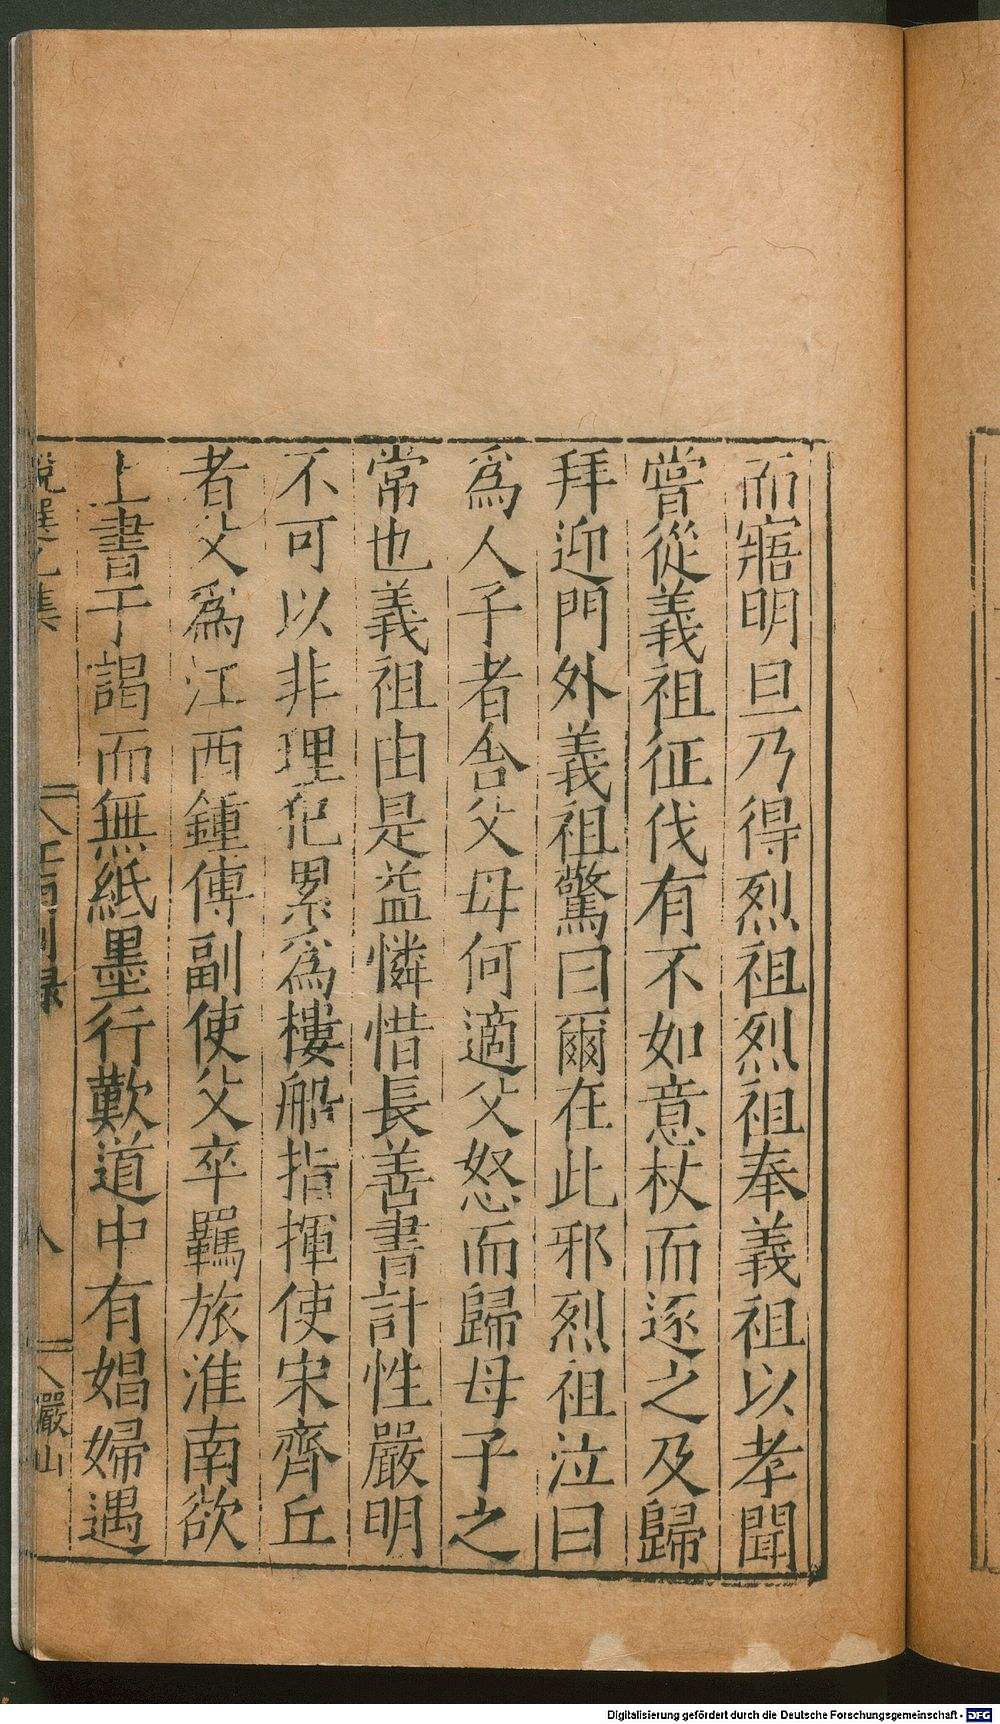 而寤明旦乃得烈祖烈祖奉義祖以孝聞
嘗從義祖征伐有不如意杖而逐之及歸
拜迎門外義祖驚曰爾在此邪烈祖泣曰
爲人子者舍父母何適父怒而歸母子之
常也義祖由是益憐惜長善書計性嚴明
不可以非理犯累爲樓船指揮使宋齊丘
者父爲江西鍾傳副使父卒羈旅淮南欲
上書于謁而無紙墨行歎道中有娼婦遇
說選 集
江南別録
八
儼山
Digitalisierung gefördert durch die Deutsche Forschungsgemeinschaft - DFG